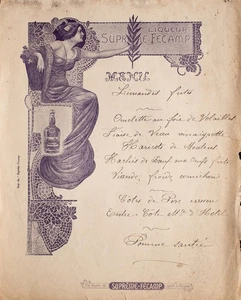 LIQUEUR
SUPRÊME-FÉCAMP
MENU
Limandes frites
Omelette au foie de Volailles
Fraise de Veau vinaigrette
Haricots de Mouton
Hachis de Bœuf aux Œufs frits
Viande froide cornichon
Côtes de Porc
Entre-Côte Mtre d'Hotel
Pomme sautée
SUPRÊME-FÉCAMP